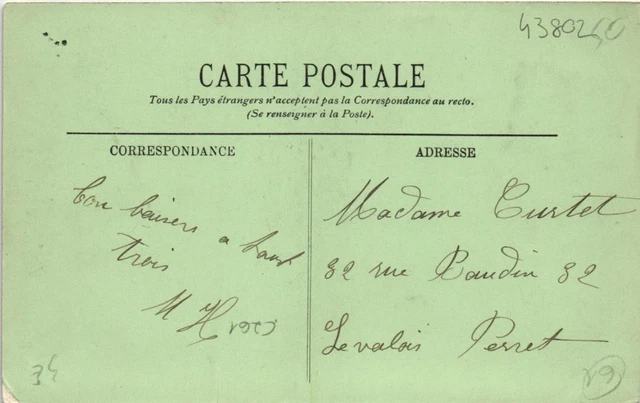 4380260
CARTE POSTALE
Tous les Pays étrangers n'acceptent pas la Correspondance au recto.
(Se renseigner à la Poste).
CORRESPONDANCE
Bon baisers a tous
trois
M H
ADRESSE
Madame Curtet
32 rue Baudin 32
Levalois Perret
34